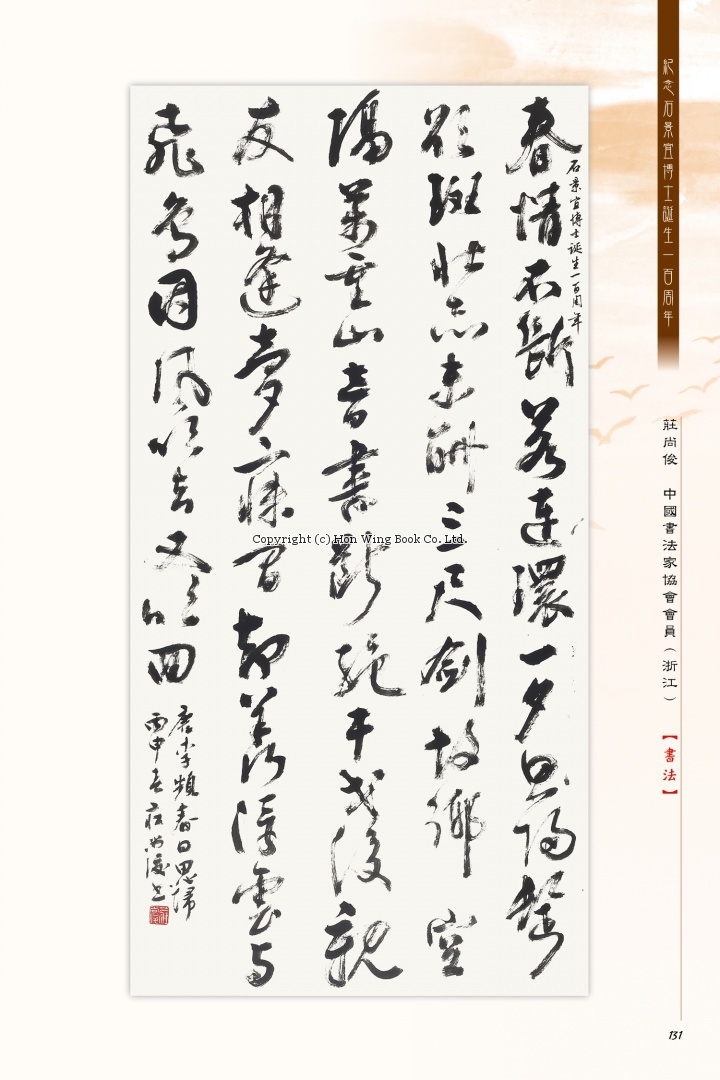 紀念石景宜博士誕生一百周年
莊尚俊 中國書法家協會會員（浙江）
【書法】
石景宜博士誕生一百周年
春情不斷若連環一夕思歸鬢
欲斑壯志未酬三尺劍故鄉空
隔萬重山音書斷絕干戈後親
友相逢夢寐間却羨浮雲与
飛鳥因風吹去又吹回
唐李頻春日思歸
丙申春莊尚俊書
Copyright (c) Hon Wing Book Co. Ltd.
131